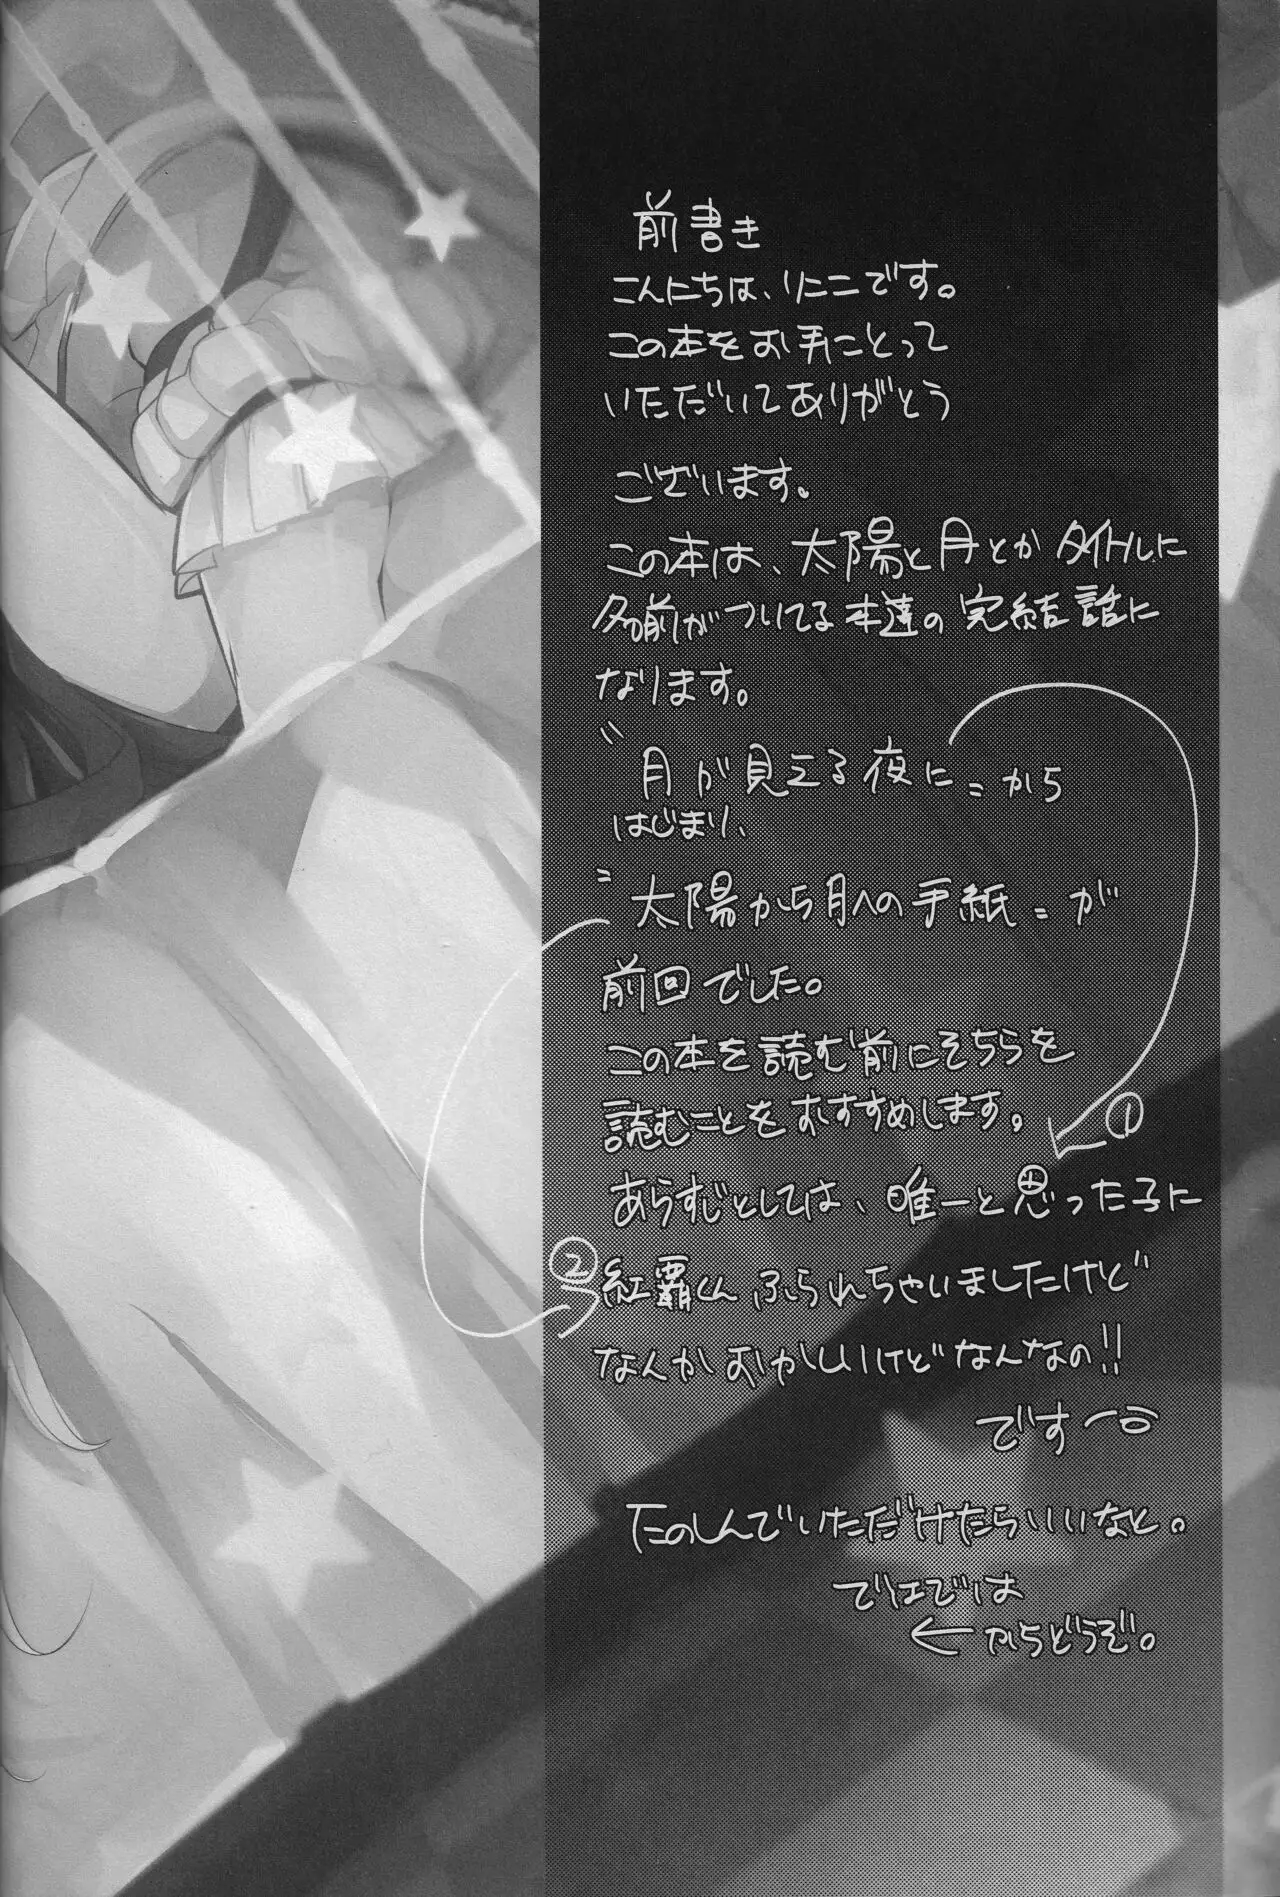 前書き
こんにちは、りこです。
この本をお手にとって
いただいてありがとう
ございます。
この本は、太陽と月とかタイトルに
名前がついてる本達の完結話に
なります。
"月が見える夜に"から
はじまり、
"太陽から月への手紙"が
前回でした。
この本を読む前にそちらを
読むことをおすすめします。
①
あらすじとしては、唯一と思った子に
②
紅覇くんふられちゃいましたけど
なんかおかしいけどなんなの!!
です
たのしんでいただけたらいいなと。
ではでは
←からどうぞ。